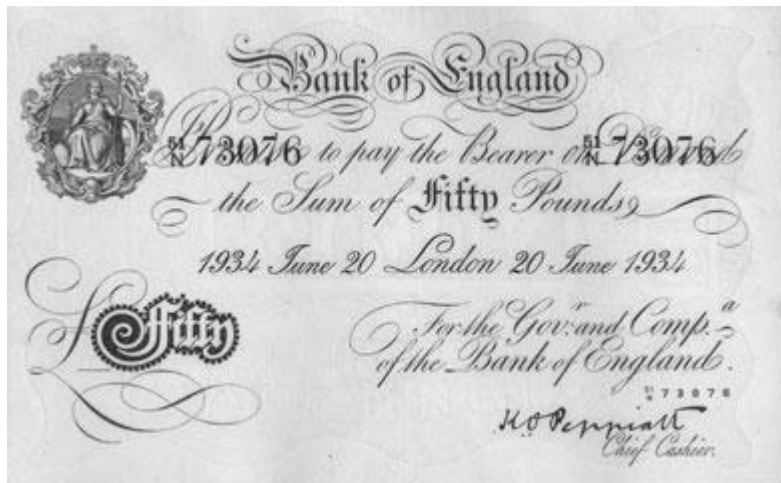 Bank of England
51/N 73076 I Promise to pay the Bearer on Demand 51/N 73076
the Sum of Fifty Pounds
1934 June 20 London 20 June 1934
£Fifty
For the Govʳ: and Compᵃ
of the Bank of England.
51/N 73076
K O Peppiatt
Chief Cashier.